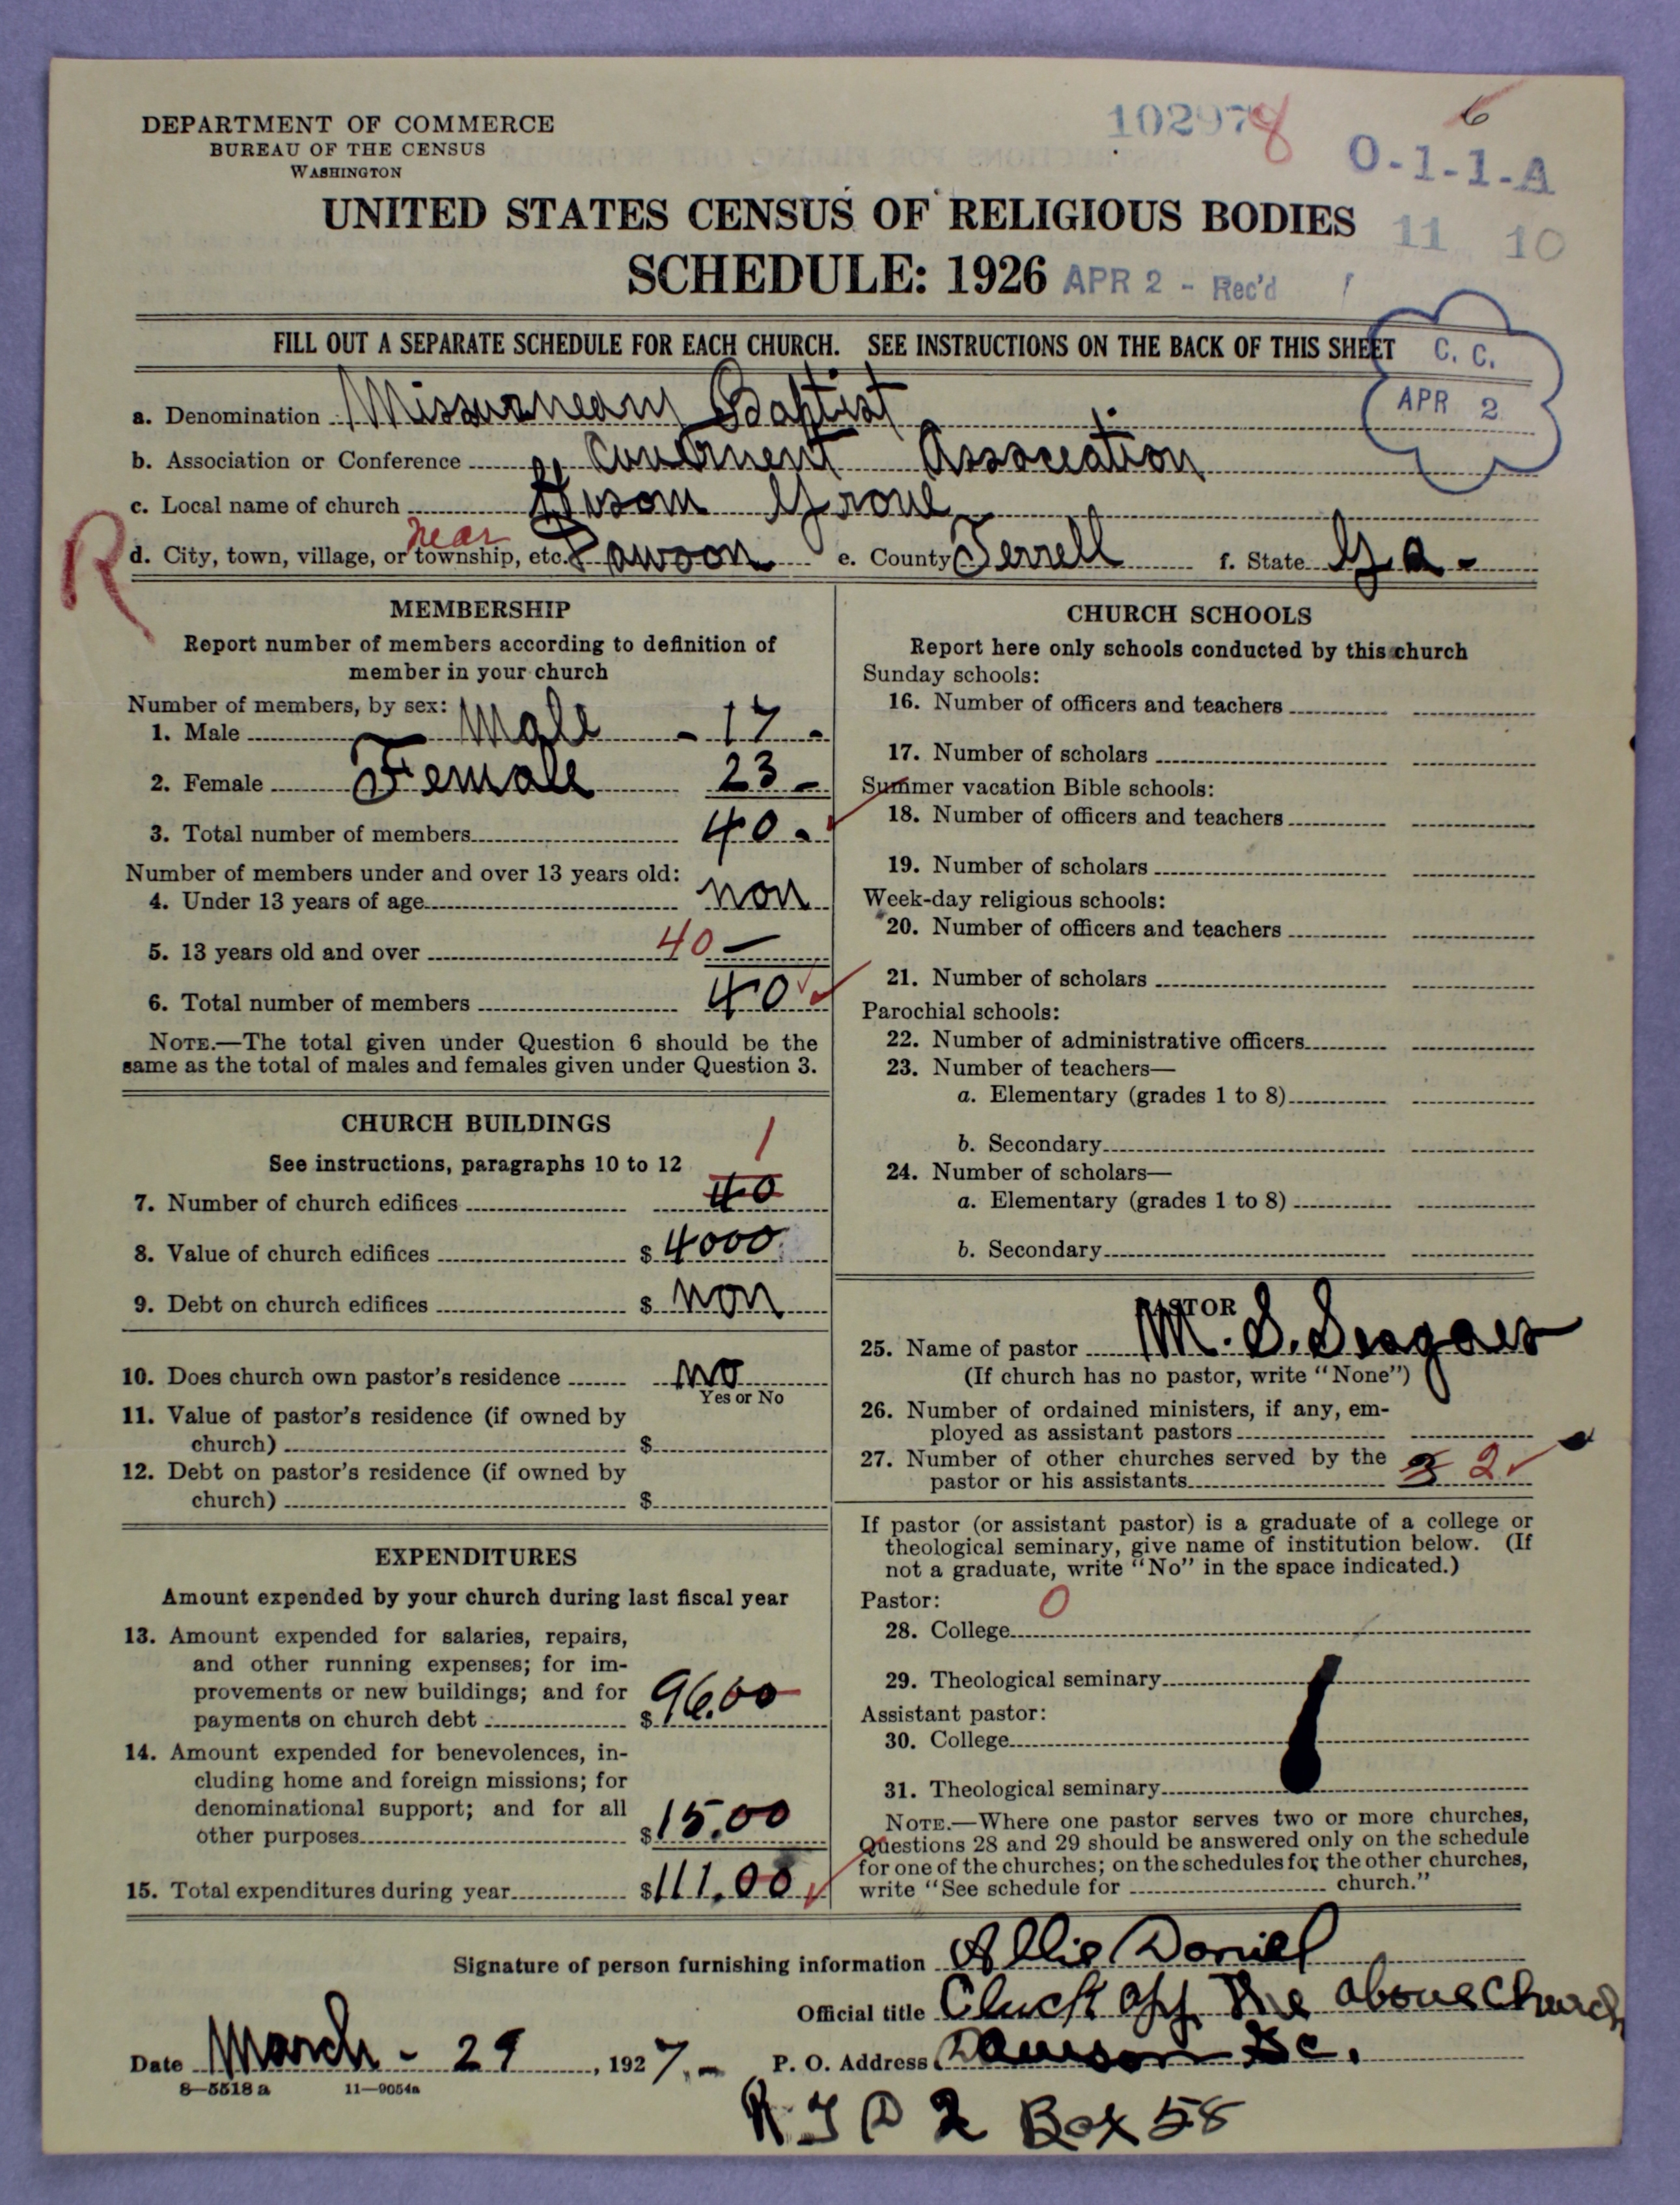 DEPARTMENT OF COMMERCE
BUREAU OF THE CENSUS
WASHINGTON
102978
6
O-1-1-A
UNITED STATES CENSUS OF RELIGIOUS BODIES
11 10
SCHEDULE: 1926 APR 2 - Rec'd
FILL OUT A SEPARATE SCHEDULE FOR EACH CHURCH. SEE INSTRUCTIONS ON THE BACK OF THIS SHEET
C. C.
APR 2
a. Denomination Missurneary Baptist
b. Association or Conference Association
c. Local name of church Grove
R
near
d. City, town, village, or township, etc. Dawson e. County Terrell f. State Ga.
MEMBERSHIP
Report number of members according to definition of
member in your church
Number of members, by sex:
1. Male Male - 17 -
2. Female Female 23 -
3. Total number of members 40 -
Number of members under and over 13 years old:
4. Under 13 years of age non
5. 13 years old and over 40 —
6. Total number of members 40
NOTE.—The total given under Question 6 should be the
same as the total of males and females given under Question 3.
CHURCH BUILDINGS
See instructions, paragraphs 10 to 12
1
7. Number of church edifices 40
8. Value of church edifices $ 4000
9. Debt on church edifices $ non
10. Does church own pastor's residence no
Yes or No
11. Value of pastor's residence (if owned by
church) $
12. Debt on pastor's residence (if owned by
church) $
EXPENDITURES
Amount expended by your church during last fiscal year
13. Amount expended for salaries, repairs,
and other running expenses; for im-
provements or new buildings; and for
payments on church debt $ 96.00
14. Amount expended for benevolences, in-
cluding home and foreign missions; for
denominational support; and for all
other purposes $ 15.00
15. Total expenditures during year $ 111.00
CHURCH SCHOOLS
Report here only schools conducted by this church
Sunday schools:
16. Number of officers and teachers
17. Number of scholars
Summer vacation Bible schools:
18. Number of officers and teachers
19. Number of scholars
Week-day religious schools:
20. Number of officers and teachers
21. Number of scholars
Parochial schools:
22. Number of administrative officers
23. Number of teachers—
a. Elementary (grades 1 to 8)
b. Secondary
24. Number of scholars—
a. Elementary (grades 1 to 8)
b. Secondary
PASTOR
25. Name of pastor M. S.
(If church has no pastor, write "None")
26. Number of ordained ministers, if any, em-
ployed as assistant pastors
27. Number of other churches served by the
pastor or his assistants 2
If pastor (or assistant pastor) is a graduate of a college or
theological seminary, give name of institution below. (If
not a graduate, write "No" in the space indicated.)
Pastor: 0
28. College
29. Theological seminary
Assistant pastor:
30. College
31. Theological seminary
NOTE.—Where one pastor serves two or more churches,
Questions 28 and 29 should be answered only on the schedule
for one of the churches; on the schedules for the other churches,
write "See schedule for church."
Signature of person furnishing information Allie Daniel
Official title Cluck off the above Church
Date March - 29, 1927. - P. O. Address Dawson
8—5518 a 11—9054a
R F D 2 Box 58